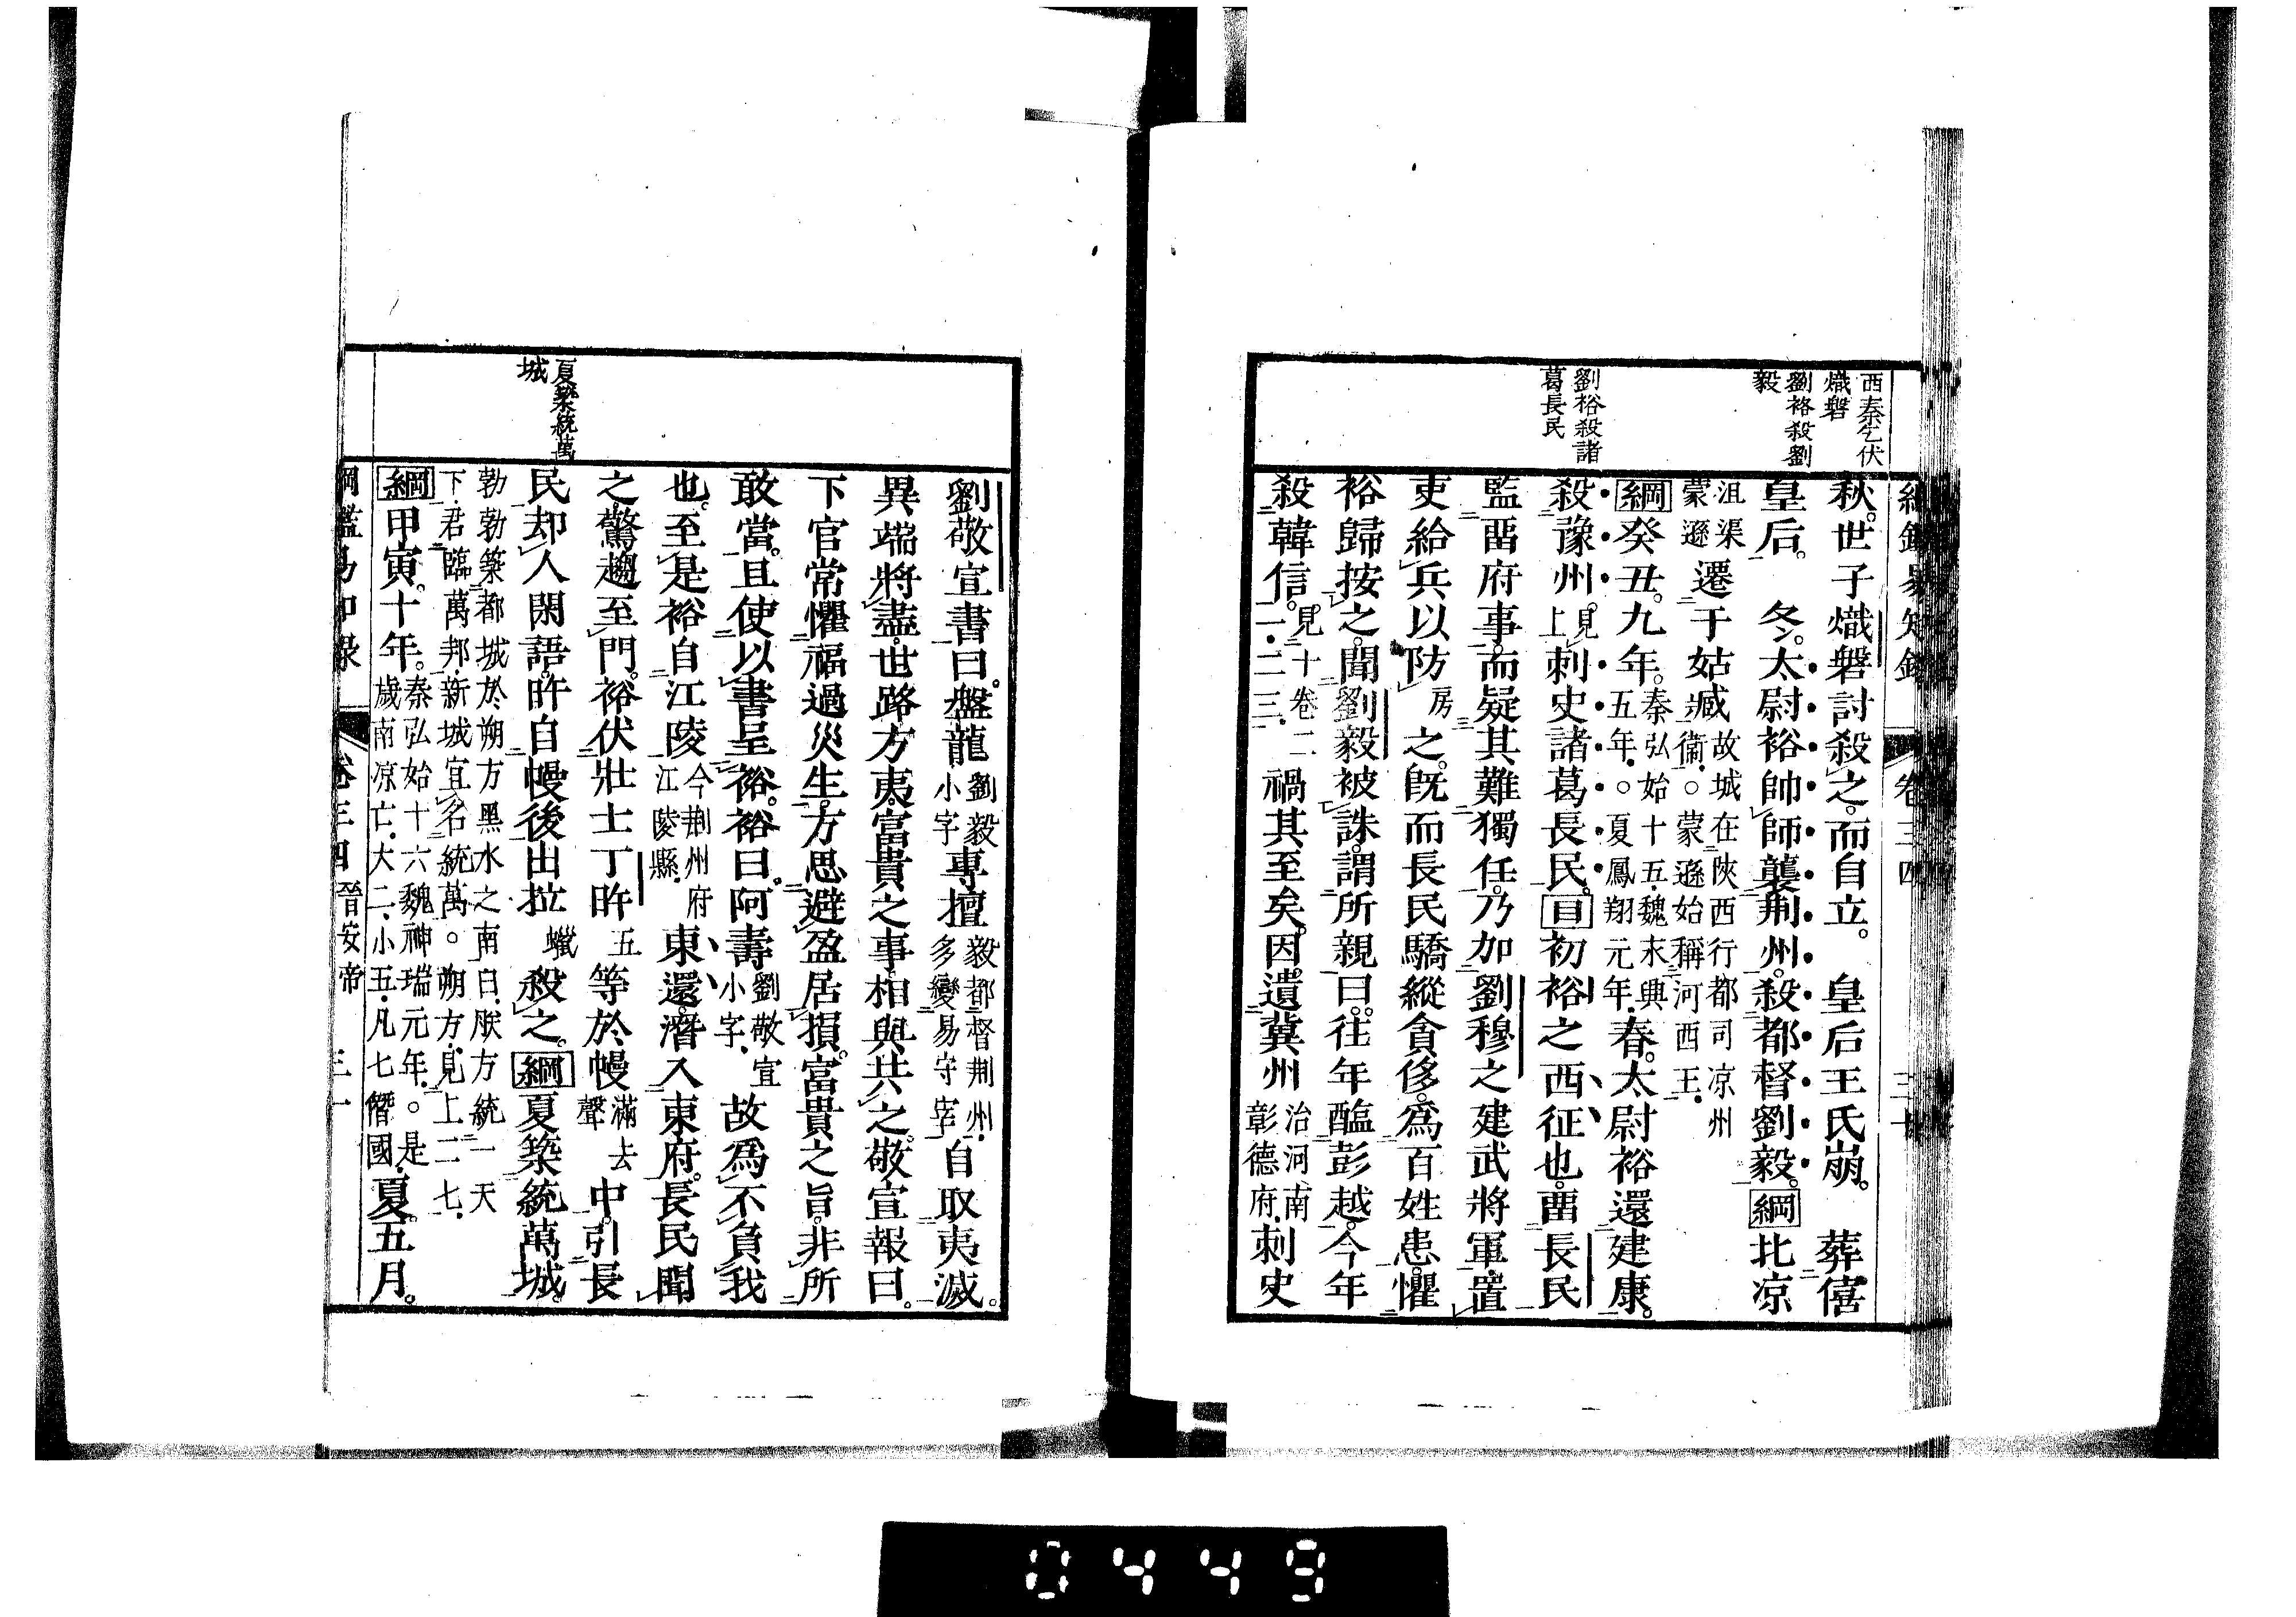 西秦乞伏
熾磐
劉裕殺劉
毅
劉裕殺諸
葛長民
卷三四
三十
秋。世子熾磐討殺之。而自立。 皇后王氏崩。 葬僖
皇后。 冬。太尉裕帥師襲荆州。殺都督劉毅。綱北凉
沮渠蒙遜遷于姑臧故城在陝西行都司凉州衞。○蒙遜始稱河西王。
綱癸丑。九年。秦弘始十五。魏永興五年。○夏鳳翔元年。春。太尉裕還建康。
殺豫州。見上刺史諸葛長民。目初裕之西征也。畱長民
監畱府事。而疑其難獨任。乃加劉穆之建武將軍。置
吏給兵以防房之。旣而長民驕縱貪侈。爲百姓患。懼
裕歸按之。聞劉毅被誅。謂所親曰。往年醢彭越。今年
殺韓信。見十卷二一.二三.禍其至矣。因遺冀州治河南彰德府.刺史
夏築統萬
城
劉敬宣書曰。盤龍劉毅小字專擅毅都督荆州.多變易守宰自取夷滅。
異端將盡。世路方夷。富貴之事。相與共之。敬宣報曰。
下官常懼福過災生。方思避盈居損。富貴之旨。非所
敢當。且使以書呈裕。裕曰。阿壽劉敬宣小字.故爲不負我
也。至是裕自江陵今荆州府江陵縣.東還。潛入東府。長民聞
之。驚趨至門。裕伏壯士丁旿五等於幔滿去聲中。引長
民却人閑語。旿自幔後出拉蠟殺之。綱夏築統萬城。
勃勃築都城於朔方黑水之南曰.朕方統一天
下君臨萬邦.新城宜名統萬。○朔方.見上二七.
綱甲寅。十年。秦弘始十六魏神瑞元年.○是歲南凉亡.大二.小五.凡七僭國.夏。五月。
卷三四 晉安帝 三一
0449